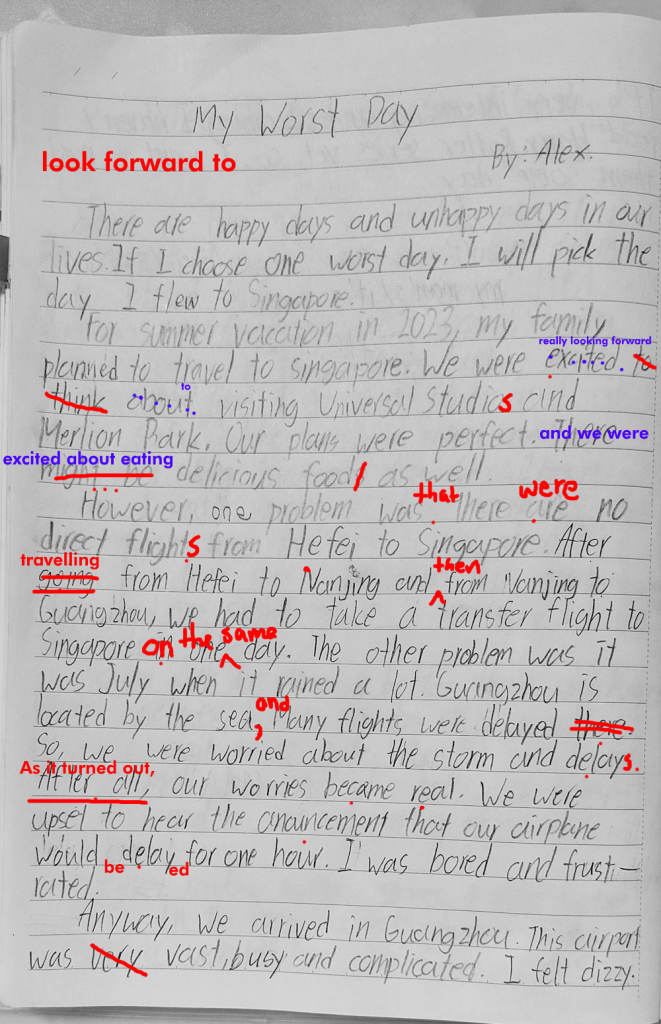 My Worst Day
look forward to
By: Alex.
There are happy days and unhappy days in our
lives. If I choose one worst day. I will pick the
day I flew to Singapore.
For summer vacation in 2023, my family
really looking forward
planned to travel to singapore. We were excited to
to
think about visiting Universal Studios and
Merlion Park. Our plans were perfect. There
and we were
excited about eating
might be delicious food as well.
that were
However, one problem was there are no
direct flights from Hefei to Singapore. After
travelling then
going from Hefei to Nanjing and from Nanjing to
Guangzhou, we had to take a transfer flight to
on the same
Singapore in one day. The other problem was it
was July when it rained a lot. Guangzhou is
and
located by the sea, Many flights were delayed there.
So, we were worried about the storm and delays.
As it turned out,
After all, our worries became real. We were
upset to hear the anouncement that our airplane
would delay for one hour. I was bored and frust-
be ed
rated.
Anyway, we arrived in Guangzhou. This airport
was very vast, busy and complicated. I felt dizzy.